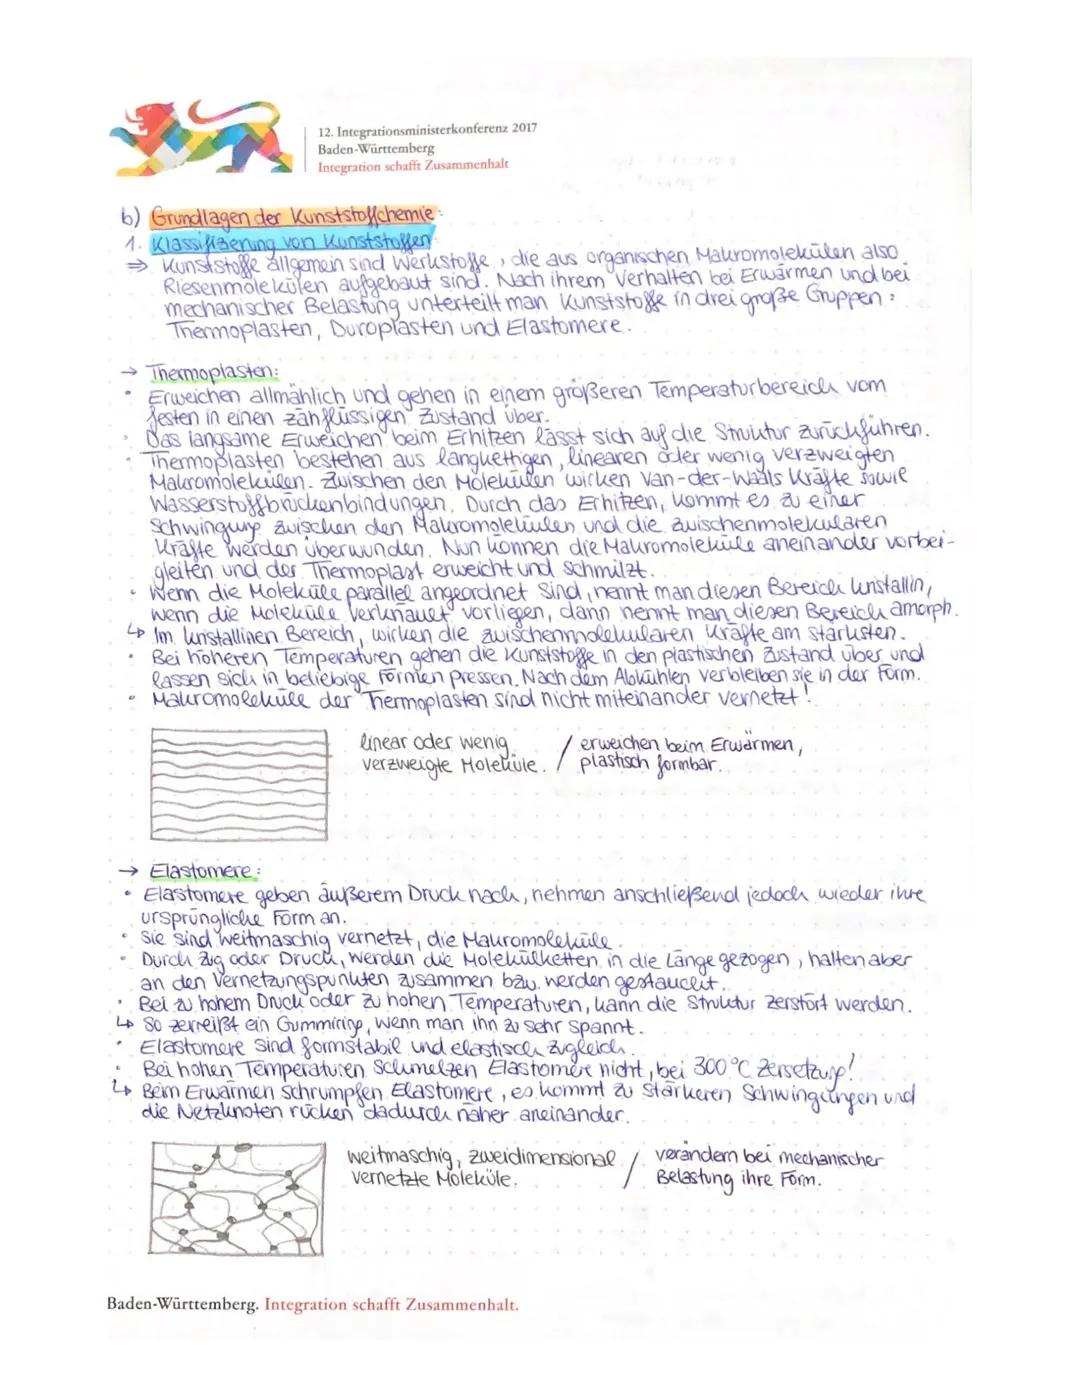 12. Integrationsministerkonferenz 2017
Baden-Württemberg
Integration schafft Zusammenhalt
b) Grundlagen der Kunststoffchemie:
1. Klassifizierung von Kunststoffen
⇒ Kunststoffe allgemein sind Werkstoffe, die aus organischen Makromolekülen also
Riesenmolekülen aufgebaut sind. Nach ihrem Verhalten bei Erwärmen und bei
mechanischer Belastung unterteilt man Kunststoffe in drei große Gruppen:
Thermoplasten, Duroplasten und Elastomere.
→ Thermoplasten:
• Erweichen allmählich und gehen in einem größeren Temperaturbereich vom
festen in einen zähflüssigen Zustand über.
• Das langsame Erweichen beim Erhitzen lässt sich auf die Struktur zurückführen.
• Thermoplasten bestehen aus langkettigen, linearen oder wenig verzweigten
Makromolekülen. Zwischen den Molekülen wirken Van-der-Waals Kräfte sowie
Wasserstoffbrückenbindungen. Durch das Erhitzen, kommt es zu einer
Schwingung zwischen den Makromolekülen und die zwischenmolekularen
Kräfte werden überwunden. Nun können die Makromoleküle aneinander vorbei-
gleiten und der Thermoplast erweicht und schmilzt.
• Wenn die Moleküle parallel angeordnet sind, nennt man diesen Bereich kristallin,
wenn die Moleküle verknäuelt vorliegen, dann nennt man diesen Bereich amorph.
↳ Im kristallinen Bereich, wirken die zwischenmolekularen Kräfte am stärksten.
• Bei höheren Temperaturen gehen die Kunststoffe in den plastischen Zustand über und
lassen sich in beliebige Formen pressen. Nach dem Abkühlen verbleiben sie in der Form.
• Makromoleküle der Thermoplasten sind nicht miteinander vernetzt!
linear oder wenig / erweichen beim Erwärmen,
verzweigte Moleküle. / plastisch formbar.
→ Elastomere:
• Elastomere geben äußerem Druck nach, nehmen anschließend jedoch wieder ihre
ursprüngliche Form an.
• Sie sind weitmaschig vernetzt, die Makromoleküle.
• Durch Zug oder Druck, werden die Molekülketten in die Länge gezogen, halten aber
an den Vernetzungspunkten zusammen bzw. werden gestaucht.
• Bei zu hohem Druck oder zu hohen Temperaturen, kann die Struktur zerstört werden.
↳ So zerreißt ein Gummiring, wenn man ihn zu sehr spannt.
• Elastomere sind formstabil und elastisch zugleich.
• Bei hohen Temperaturen schmelzen Elastomere nicht, bei 300°C Zersetzung!
↳ Beim Erwärmen schrumpfen Elastomere, es kommt zu stärkeren Schwingungen und
die Netzknoten rücken dadurch näher aneinander.
weitmaschig, zweidimensional / verändern bei mechanischer
vernetzte Moleküle. / Belastung ihre Form.
Baden-Württemberg. Integration schafft Zusammenhalt.